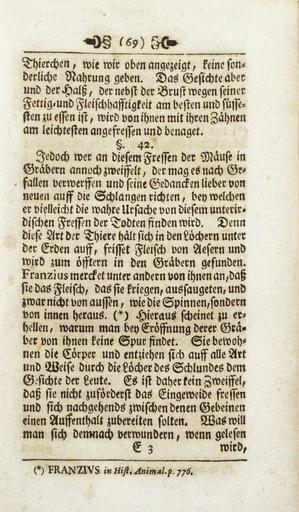 (69)
Thierchen, wie wir oben angezeigt, keine son-
derliche Nahrung geben. Das Gesichte aber
und der Halß, der nebst der Brust wegen seiner
Fettig- und Fleischhafftigkeit am besten und süsse-
sten zu essen ist, wird von ihnen mit ihren Zähnen
am leichtesten angefressen und benaget.
§. 42.
Jedoch wer an diesem Fressen der Mäuse in
Gräbern annoch zweiffelt, der mag es nach Ge-
fallen verwerffen und seine Gedancken lieber von
neuen auff die Schlangen richten, bey welchen
er vielleicht die wahre Ursache von diesem unterir-
dischen Fressen der Todten finden wird. Denn
diese Art der Thiere hält sich in den Löchern unter
der Erden auff, frisset Fleisch von Aesern und
wird zum öfftern in den Gräbern gefunden.
Franzius mercket unter andern von ihnen an, daß
sie das Fleisch, das sie kriegen, aussaugeten, und
zwar nicht von aussen, wie die Spinnen, sondern
von innen heraus. (*) Hieraus scheinet zu er-
hellen, warum man bey Eröffnung derer Grä-
ber von ihnen keine Spur findet. Sie bewoh-
nen die Cörper und entziehen sich auff alle Art
und Weise durch die Löcher des Schlundes dem
Gesichte der Leute. Es ist daher kein Zweiffel,
daß sie nicht zuförderst das Eingeweide fressen
und sich nachgehends zwischen denen Gebeinen
einen Auffenthalt zubereiten solten. Was will
man sich demnach verwundern, wenn gelesen
E 3 wird,
(*) FRANZIVS in Hist. Animal. p. 776.